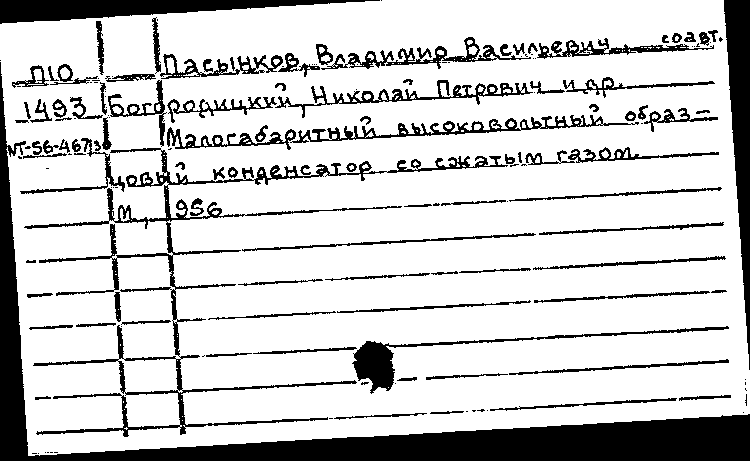 П10 Пасынков, Владимир Васильевич, соавт.
1493 Богородицкий, Николай Петрович и др.
Малогабаритный высоковольтный образ-
цовый конденсатор со сжатым газом.
М., 1956